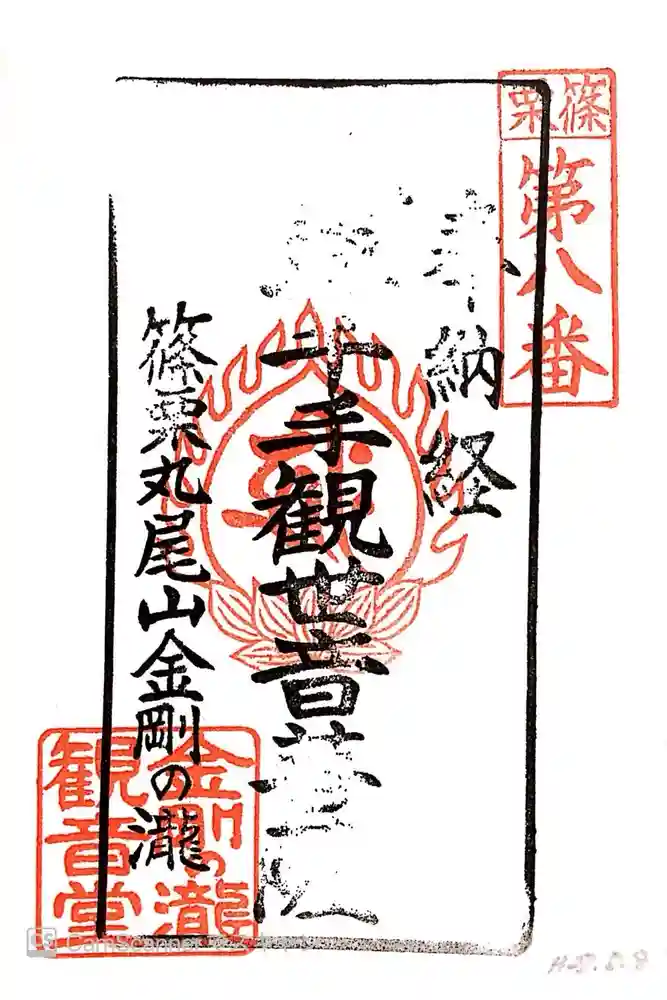 篠栗
第八番
奉納経
千手観世音菩薩
篠栗丸尾山金剛の瀧
金剛の瀧
観音堂
CS CamScanner
H-5.5.8